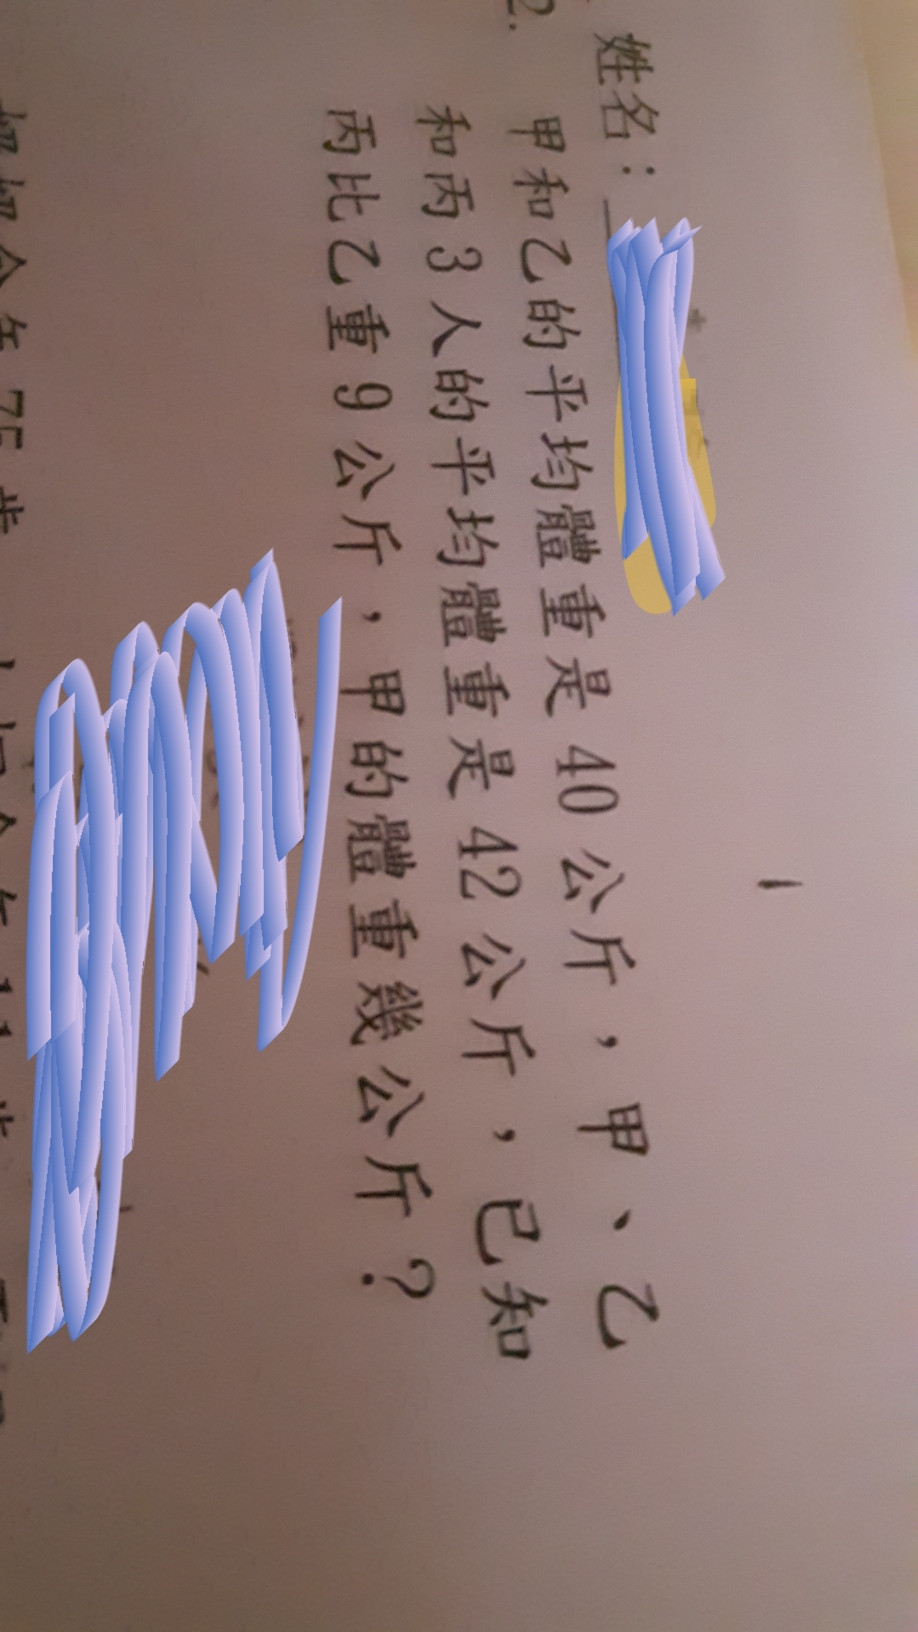 姓名：
2. 甲和乙的平均體重是 40 公斤，甲、乙
和丙 3 人的平均體重是 42 公斤，已知
丙比乙重 9 公斤，甲的體重幾公斤？